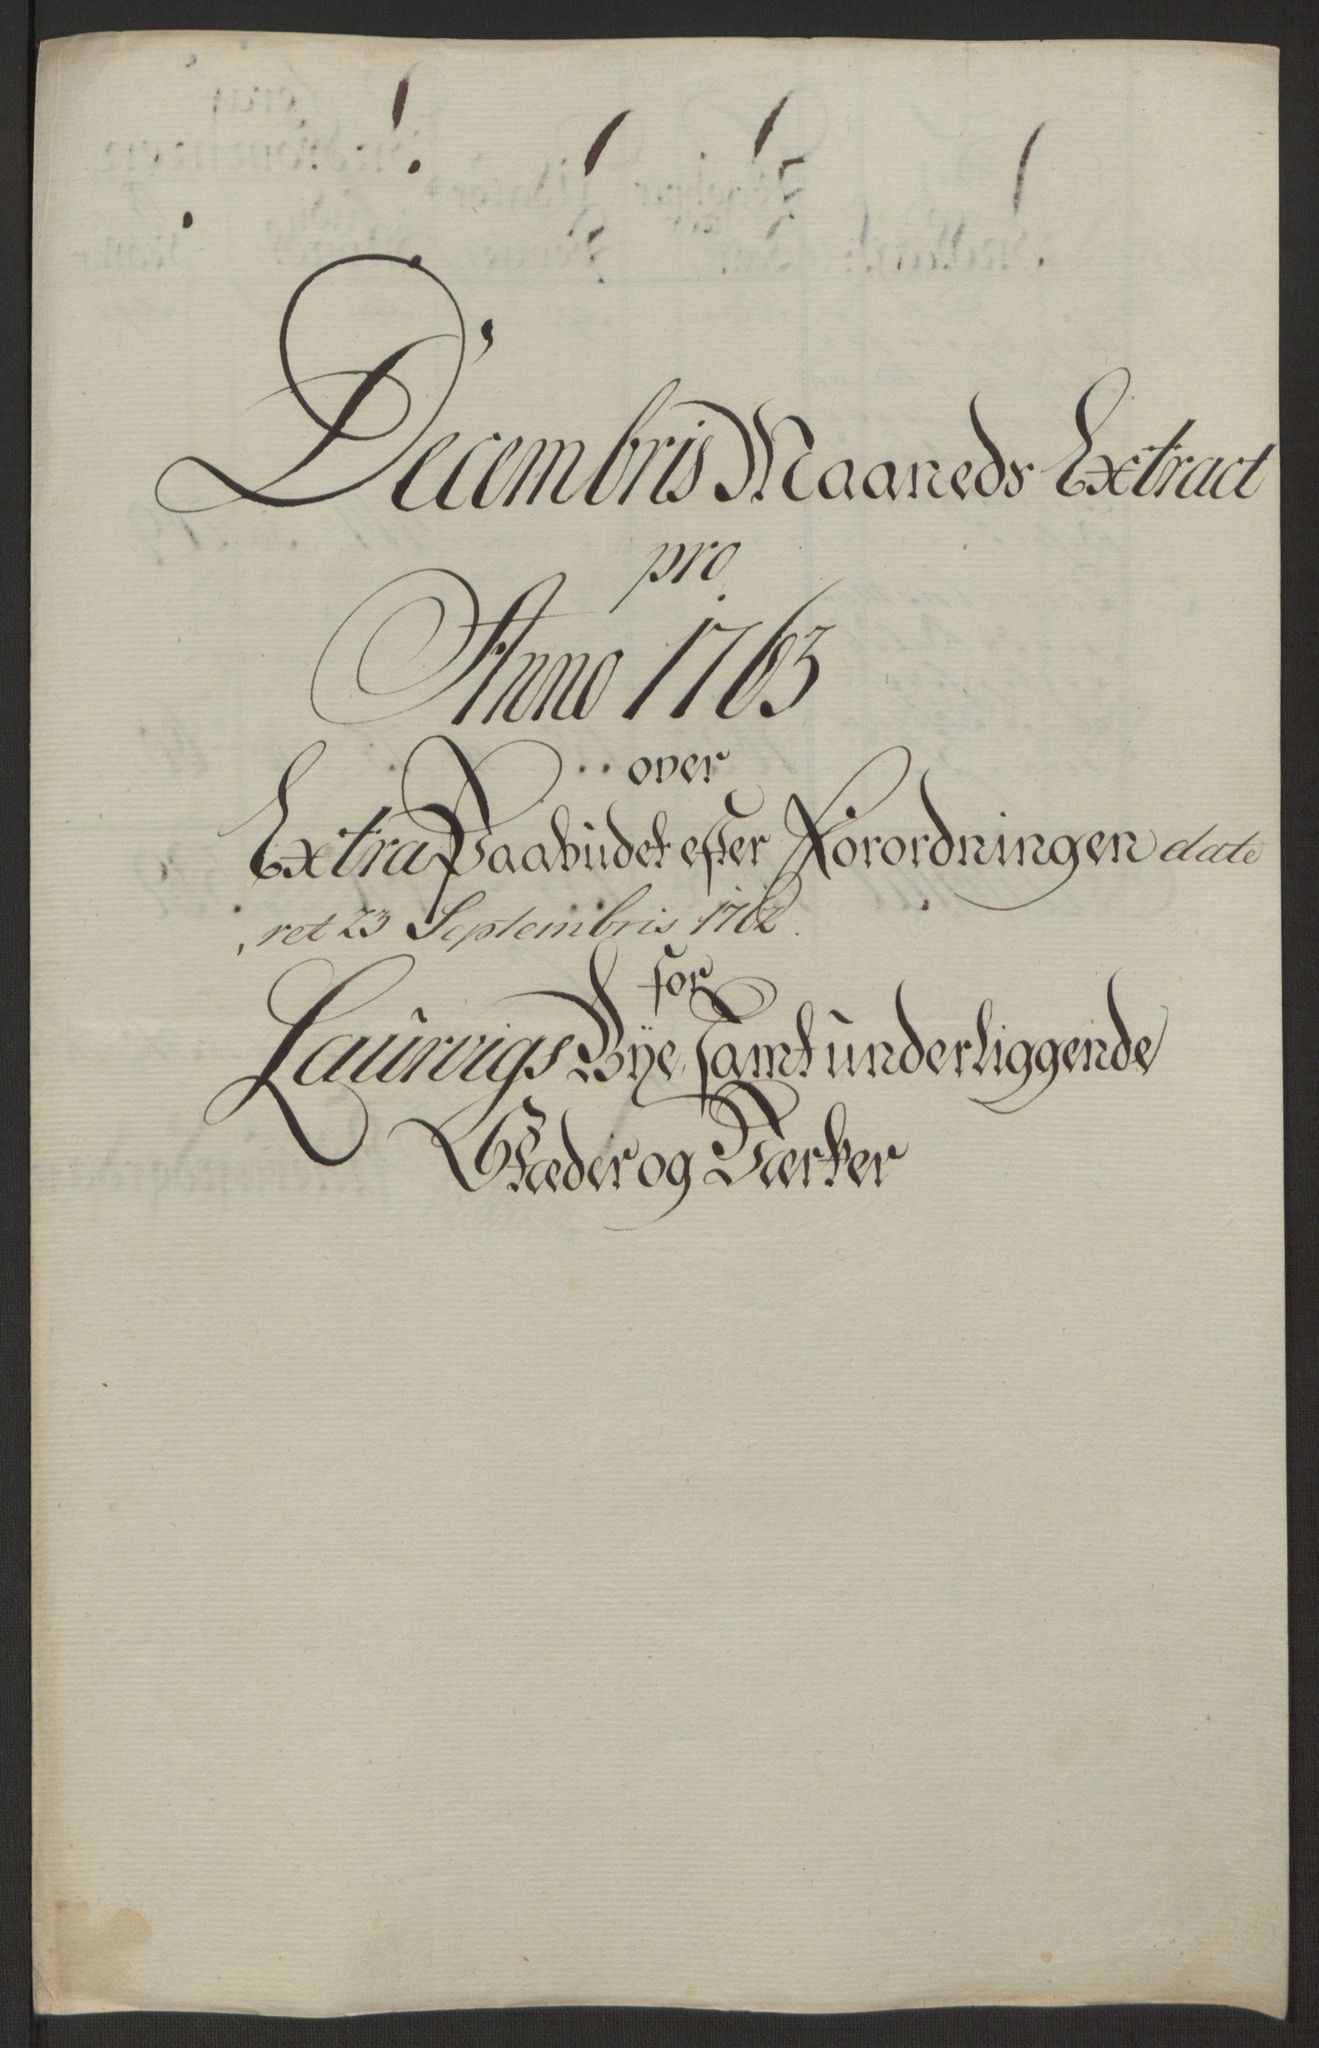 Decembris Maaneds Extract
pro
Anno 1763
over
Extra Paabudet efter Forordningen date
ret 23 Septembris 1762.
for
Laurvigs Bye, samt underliggende
Stæder og Værker